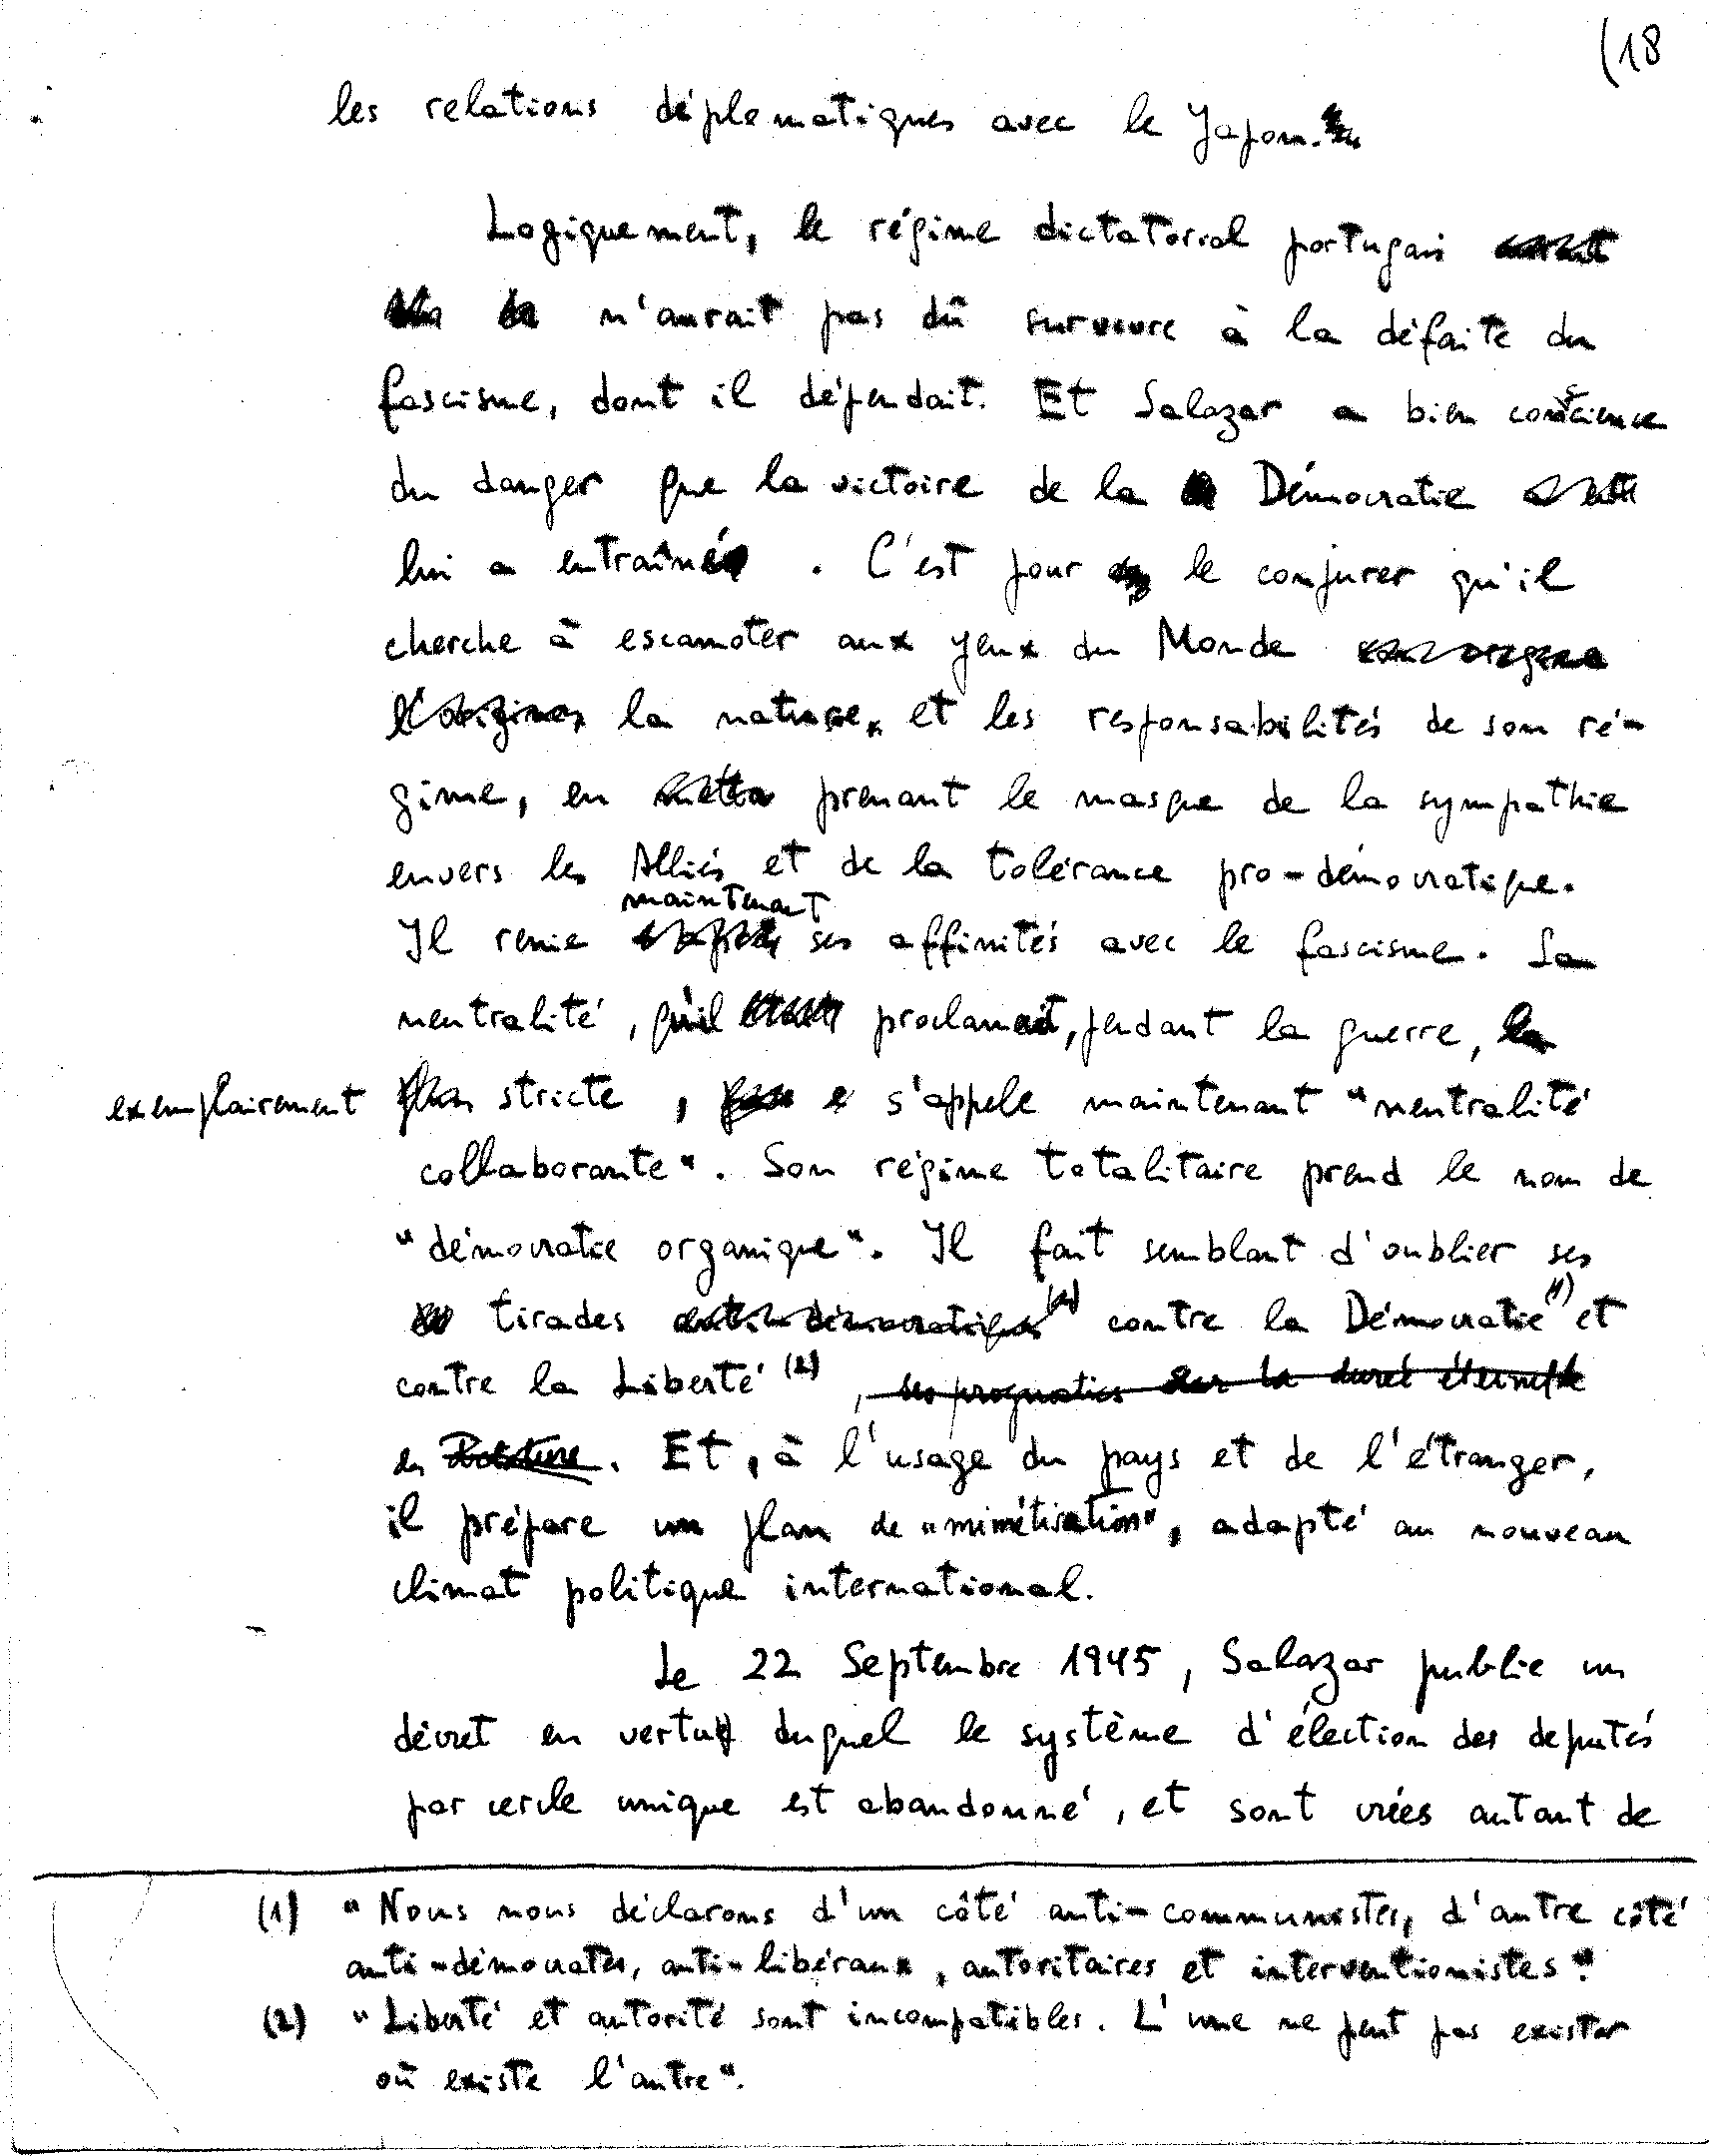 (18
les relations diplomatiques avec le Japon.
Logiquement, le régime dictatorial portugais
n'aurait pas dû survivre à la défaite du
fascisme, dont il dépendait. Et Salazar a bien conscience
du danger que la victoire de la Démocratie
lui a entraîné. C'est pour le conjurer qu'il
cherche à escamoter aux yeux du Monde
la nature, et les responsabilités de son ré-
gime, en prenant le masque de la sympathie
envers les Alliés et de la tolérance pro-démocratique.
maintenant
Il renie ses affinités avec le fascisme. Sa
neutralité, qu'il proclamait, pendant la guerre,
exemplairement stricte, s'appele maintenant "neutralité
collaborante". Son régime totalitaire prend le nom de
"démocratie organique". Il fait semblant d'oublier ses
tirades contre la Démocratie (1) et
contre la Liberté (2)
. Et, à l'usage du pays et de l'étranger,
il prépare un plan de "mimétisation", adapté au nouveau
climat politique international.
Le 22 Septembre 1945, Salazar publie un
décret en vertu duquel le système d'élection des deputés
par cercle unique est abandonné, et sont crées autant de
(1) "Nous nous déclarons d'un côté anti-communistes, d'autre côté
anti-démocrates, anti-libéraux, autoritaires et interventionistes".
(2) "Liberté et autorité sont incompatibles. L'une ne peut pas exister
où existe l'autre".